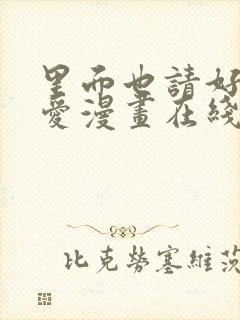 里而也請好
愛漫畫在綫
比克勞塞維茨